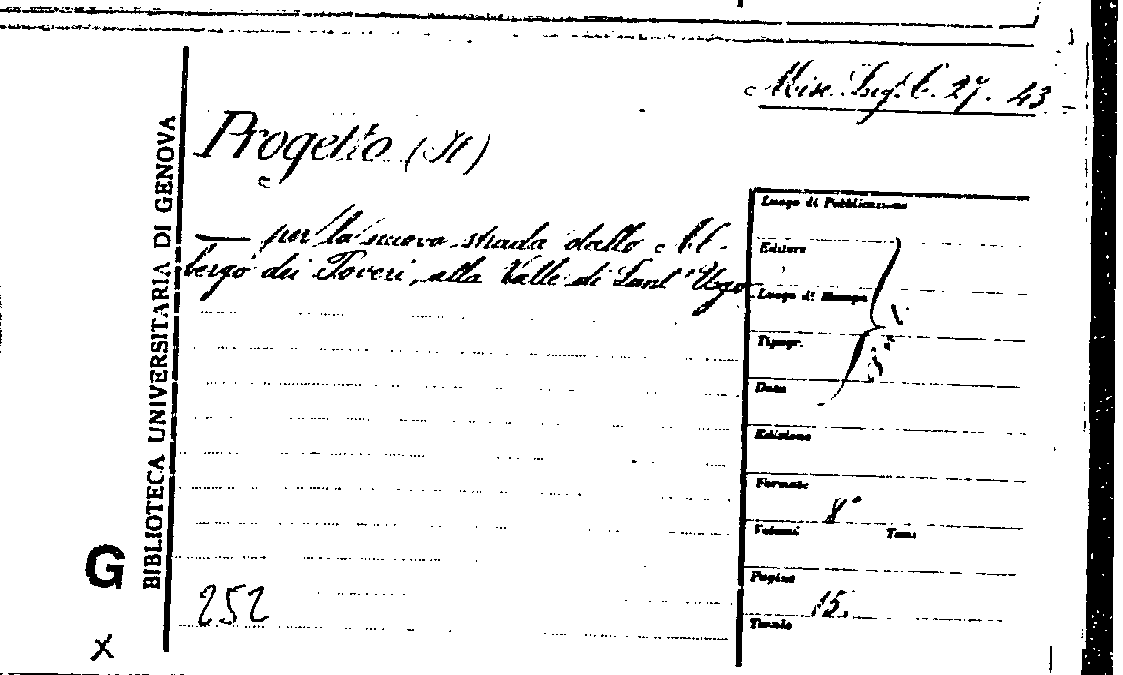 Misc. Lig. C. 27. 43
Progetto (Il)
— per la nuova strada dallo Al-
bergo dei Poveri, alla Valle di Sant'Ugo
BIBLIOTECA UNIVERSITARIA DI GENOVA
Luogo di Pubblicazione
Editore
Luogo di Stampa
Tipogr.
Data
Edizione
Formato
8°
Volumi Tomi
Pagine
15.
Tavole
252
G
X